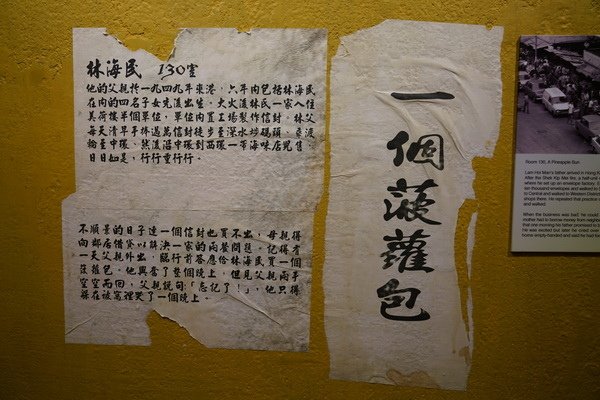 林海民 130室
他的父親於一九四九年來港,六年內包括林海民
在內的四名子女先後出生。大火後林氏一家入住
美荷樓半個單位,單位內置工場製作信封。林父
每天清早手挽過萬信封徒步至深水埗碼頭,乘渡
輪至中環,然後沿中環到西環一帶海味店兜售。
日日如是,行行重行行。
不順景的日子連一個信封也賣不出,母親得
向鄰居借貸以解決一家的兩餐問題。記得有
一天父親外出,臨行前答應給林海民買一個
菠蘿包。他興奮了整個晚上,但見父親兩手
空空而回,父親說句「忘記了!」,他只得
躲在被窩裡哭了一個晚上。
一個菠蘿包
Room 130, A Pineapple Bun
Lam Hoi Man's father arrived in Hong
After the Shek Kip Mei fire, a half-unit
where he set up an envelope factory.
ten thousand envelopes and walked
to Central and walked to Western
shops there. He repeated that practice
and walked.
When the business was bad, he could
mother had to borrow money from
that one morning his father promised to
He was excited but later he cried over
home empty-handed and said he had